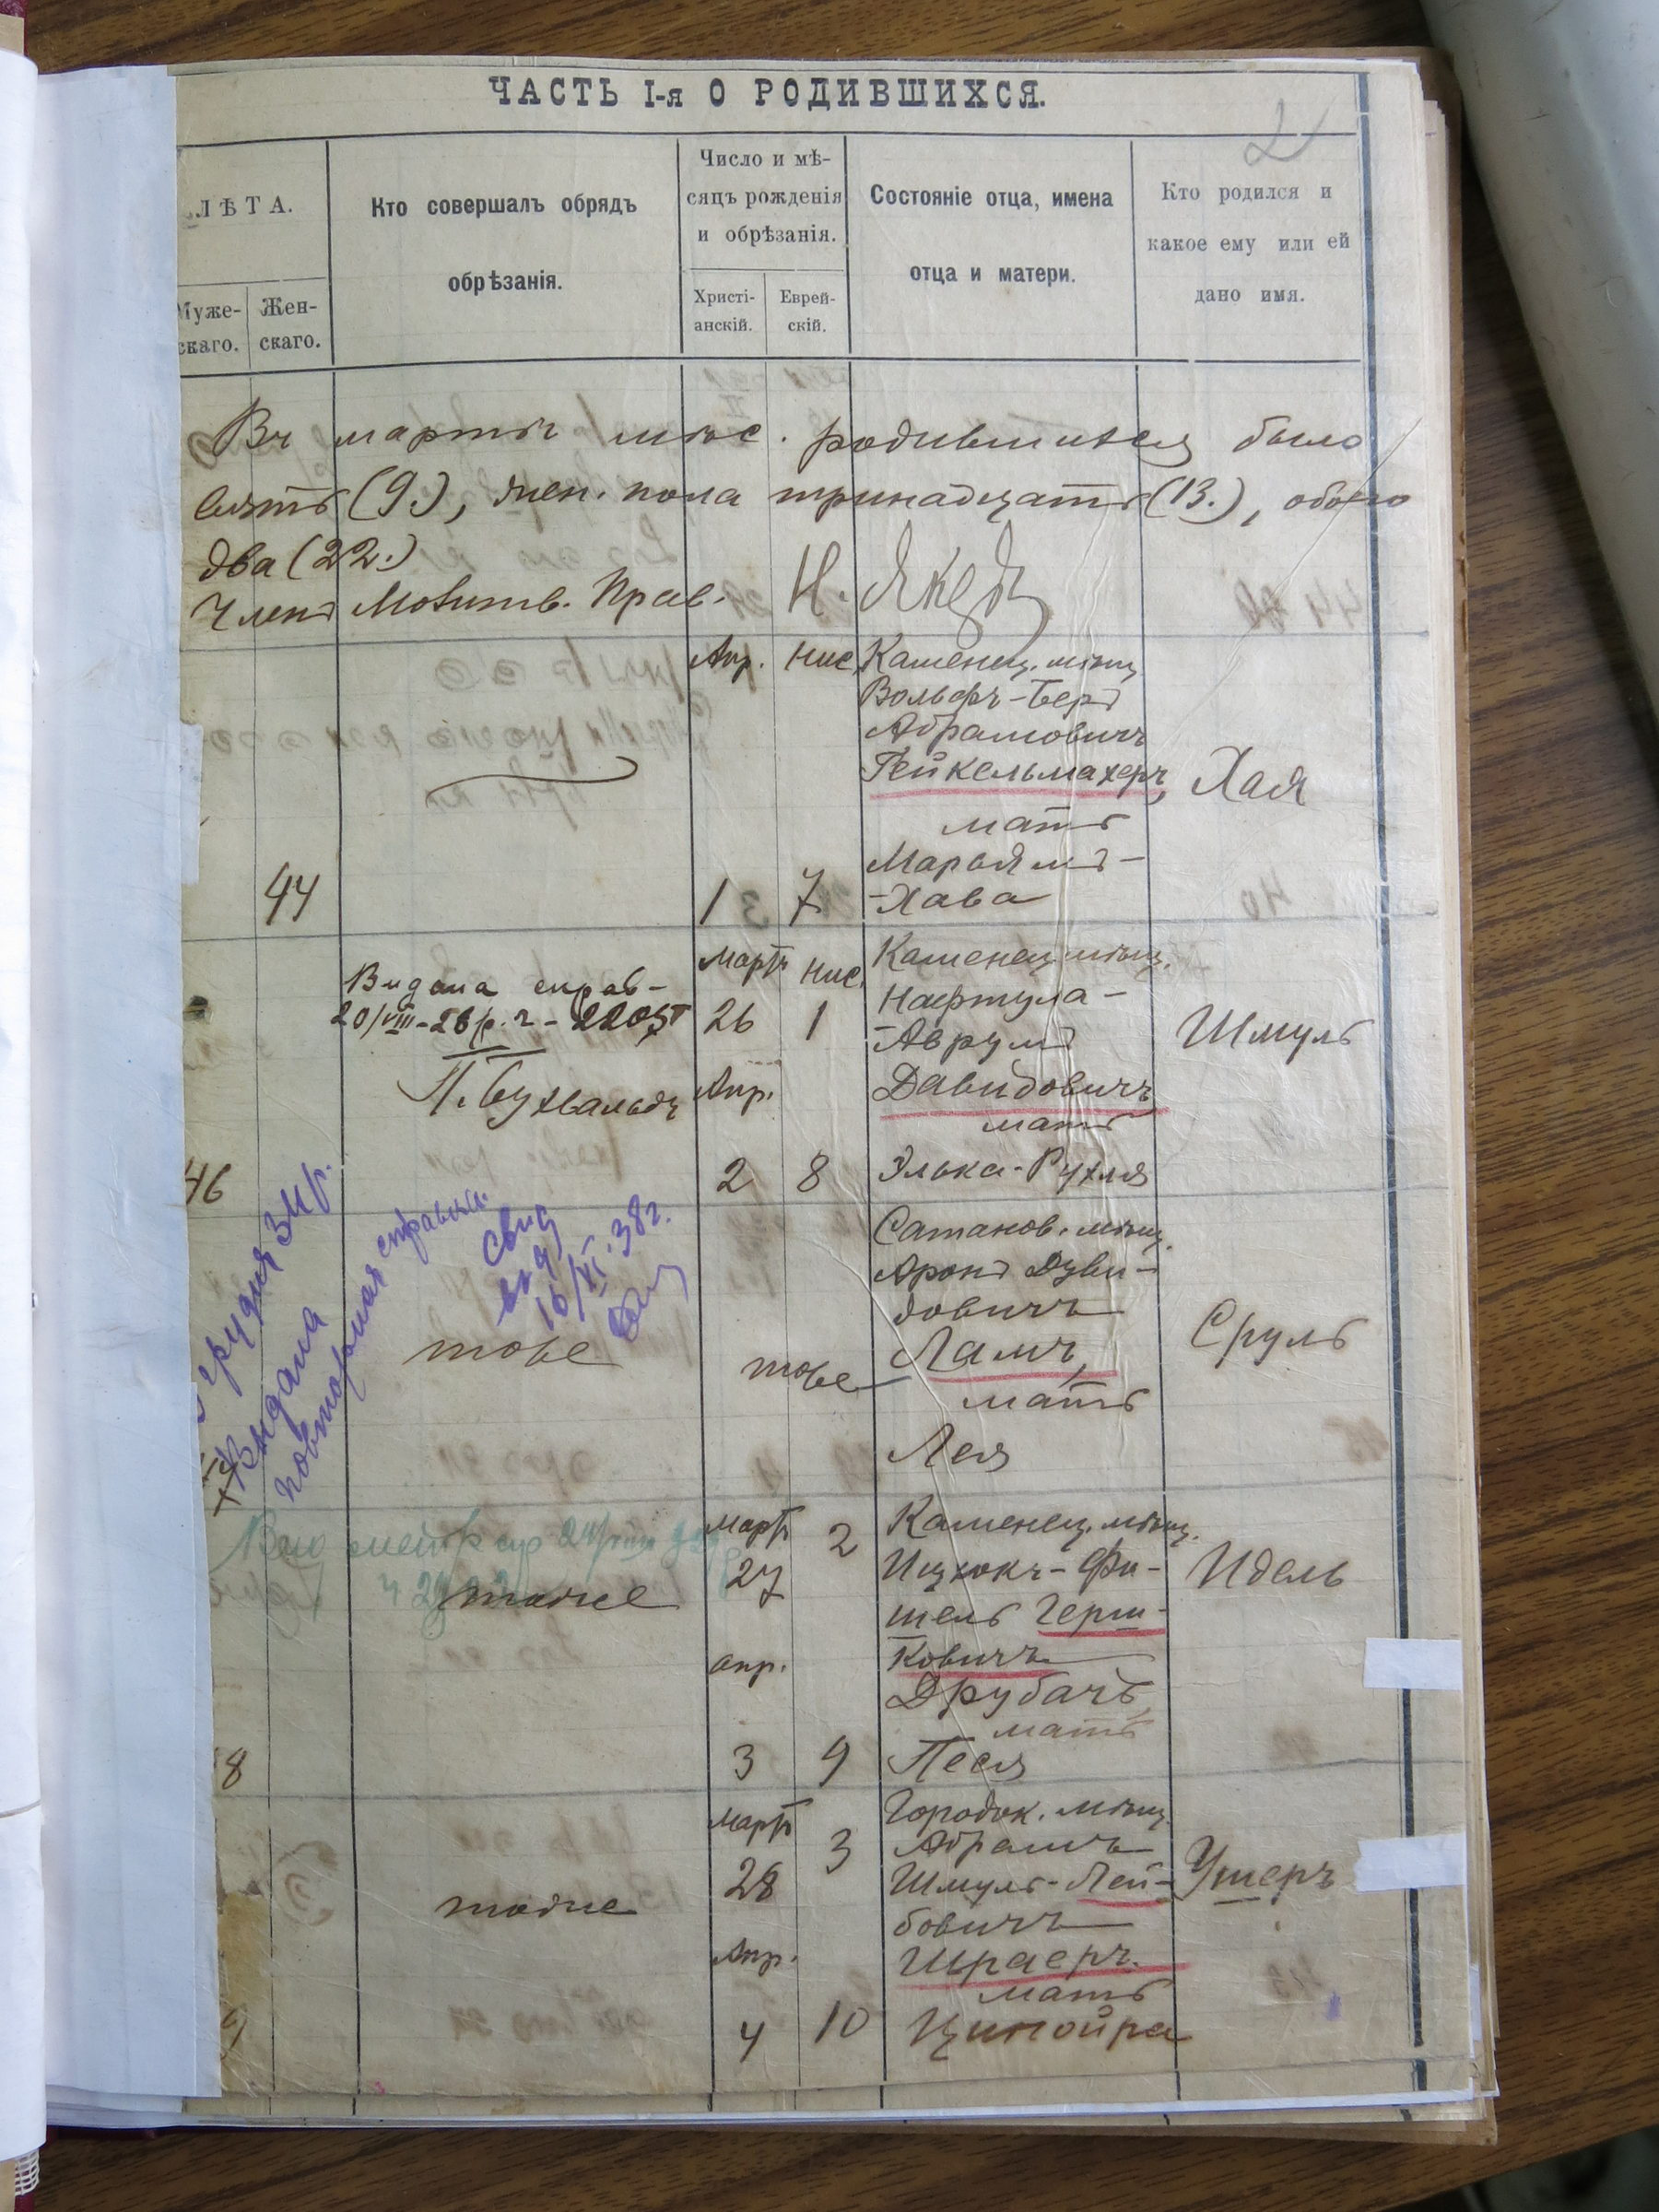 ЧАСТЬ I-я О РОДИВШИХСЯ.
2
ЛѢТА.
Муже-
скаго.
Жен-
скаго.
Кто совершалъ обрядъ
обрѣзанія.
Число и мѣ-
сяцъ рожденія
и обрѣзанія.
Христі-
анскій.
Еврей-
скій.
Состояніе отца, имена
отца и матери.
Кто родился и
какое ему или ей
дано имя.
Въ мартѣ мѣс. родившихся было
вять (9.), жен. пола тринадцать (13.), обоего
два (22.)
Членъ Молитв. Прав.
44
Апр. Нис.
1 7
Каменец. мѣщ.
Вольфъ-Беръ
Абрамовичъ
Гейкельмахеръ,
мать
Марьямъ-
-Хава
Хая
46
Видана справ-
20/VIII-26 р. ч-2205
П. Бухвальдъ
Мартъ Нис.
26 1
Апр.
2 8
Каменец. мѣщ.
Нафтула-
-Аврумъ
Давидовичъ
мать
Элька-Рухля
Шмуль
Выдана
повторная справка
16/VI.38г.
тоже
тоже
Сатанов. мѣщ.
Аронъ Дуви-
довичъ
Ламъ,
мать
Лея
Сруль
8
тоже
Мартъ 2
27
апр.
3 9
Каменец. мѣщ.
Ицхокъ-Фи-
шель Герш-
ковичъ
Друбачъ,
мать
Песя
Идель
9
тоже
Мартъ 3
28
Апр.
4 10
Городок. мѣщ.
Абрамъ
Шмуль-Лей-
бовичъ
Шраеръ.
мать
Ципойра
Ушеръ